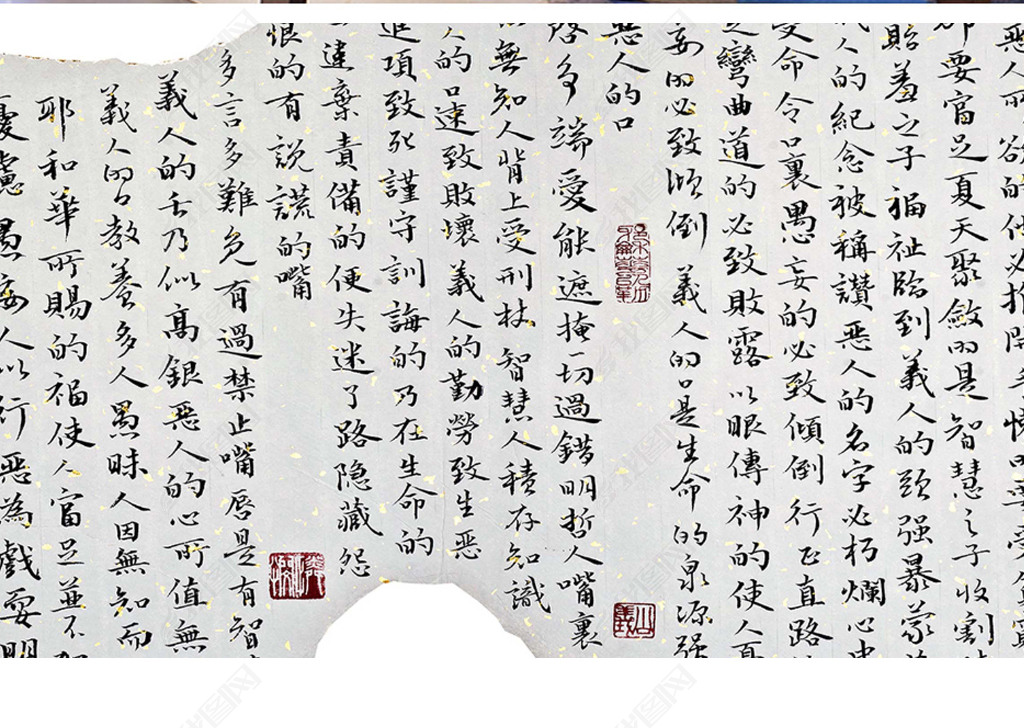 惡人所欲的他必推開手懶的要受貧
却要富足夏天聚斂的是智慧之子收割
貽羞之子福祉臨到義人的頭强暴蒙
人的紀念被稱讚惡人的名字必朽爛心中
受命令口裏愚妄的必致傾倒行正直路
彎曲道的必致敗露以眼傳神的使人憂
妄的必致傾倒 義人的口是生命的泉源强
惡人的口
啓爭端愛能遮掩一切過錯明哲人嘴裏
無知人背上受刑杖智慧人積存知識
人的口速致敗壞 義人的勤勞致生惡
進項致死謹守訓誨的乃在生命的
違棄責備的便失迷了路隐藏怨
恨的有說謊的嘴
多言多難免有過禁止嘴唇是有智
義人的舌乃似高銀惡人的心所值無
義人的口教養多人愚昧人因無知而
耶和華所賜的福使人富足並不
憂慮愚妄人以行惡為戲耍明